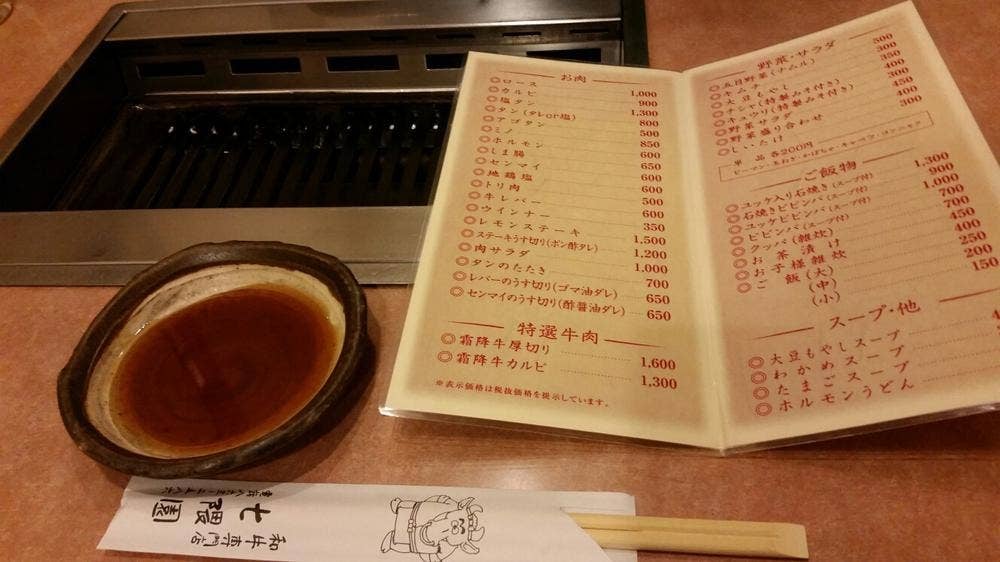 お肉
◎ロース 1,000
◎カルビ 900
◎塩タン 1,300
◎タン(タレor塩) 800
◎アゴタン 500
◎ミノ 850
◎ホルモン 600
◎しま腸 650
◎センマイ 600
◎地鶏塩 600
◎トリ肉 500
◎牛レバー 600
◎ウインナー 350
◎レモンステーキ 1,500
◎ステーキうす切り(ポン酢タレ) 1,200
◎肉サラダ 1,000
◎タンのたたき 700
◎レバーのうす切り(ゴマ油ダレ) 650
◎センマイのうす切り(酢醤油ダレ) 650
特選牛肉
◎霜降牛厚切り 1,600
◎霜降牛カルビ 1,300
※表示価格は税抜価格を提示しています。
野菜・サラダ
◎五目野菜(ナムル) 500
◎キムチ 300
◎大豆もやし 350
◎チシャ(特製みそ付き) 400
◎キュウリ(特製みそ付き) 300
◎野菜サラダ 450
◎野菜盛り合わせ 400
◎しいたけ 300
単品各200円
ピーマン・玉ねぎ・かぼちゃ・キャベツ・コンニャク
ご飯物
◎ユッケ入り石焼き(スープ付) 1,300
◎石焼きビビンバ(スープ付) 900
◎ユッケビビンバ(スープ付) 1,000
◎ビビンバ(スープ付) 700
◎クッパ(雑炊) 700
◎お茶漬け 450
◎お子様雑炊 400
◎ご飯(大) 250
(中) 200
(小) 150
スープ・他
◎大豆もやしスープ
◎わかめスープ
◎たまごスープ
◎ホルモンうどん
和牛専門店
七隈園